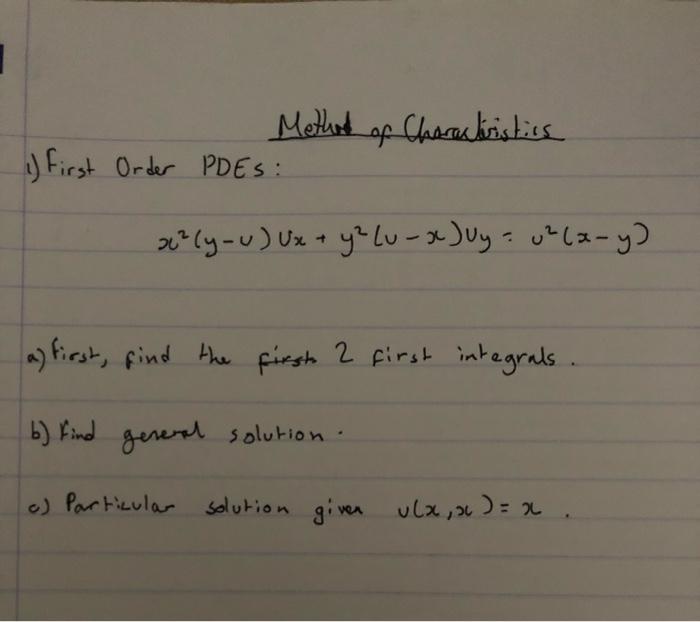 Method of Characteristics
1) First Order PDEs:
x²(y-u)Ux + y²(u-x)Uy = u²(x-y)
a) first, find the first 2 first integrals.
b) Find general solution.
c) Particular solution given u(x,x) = x.